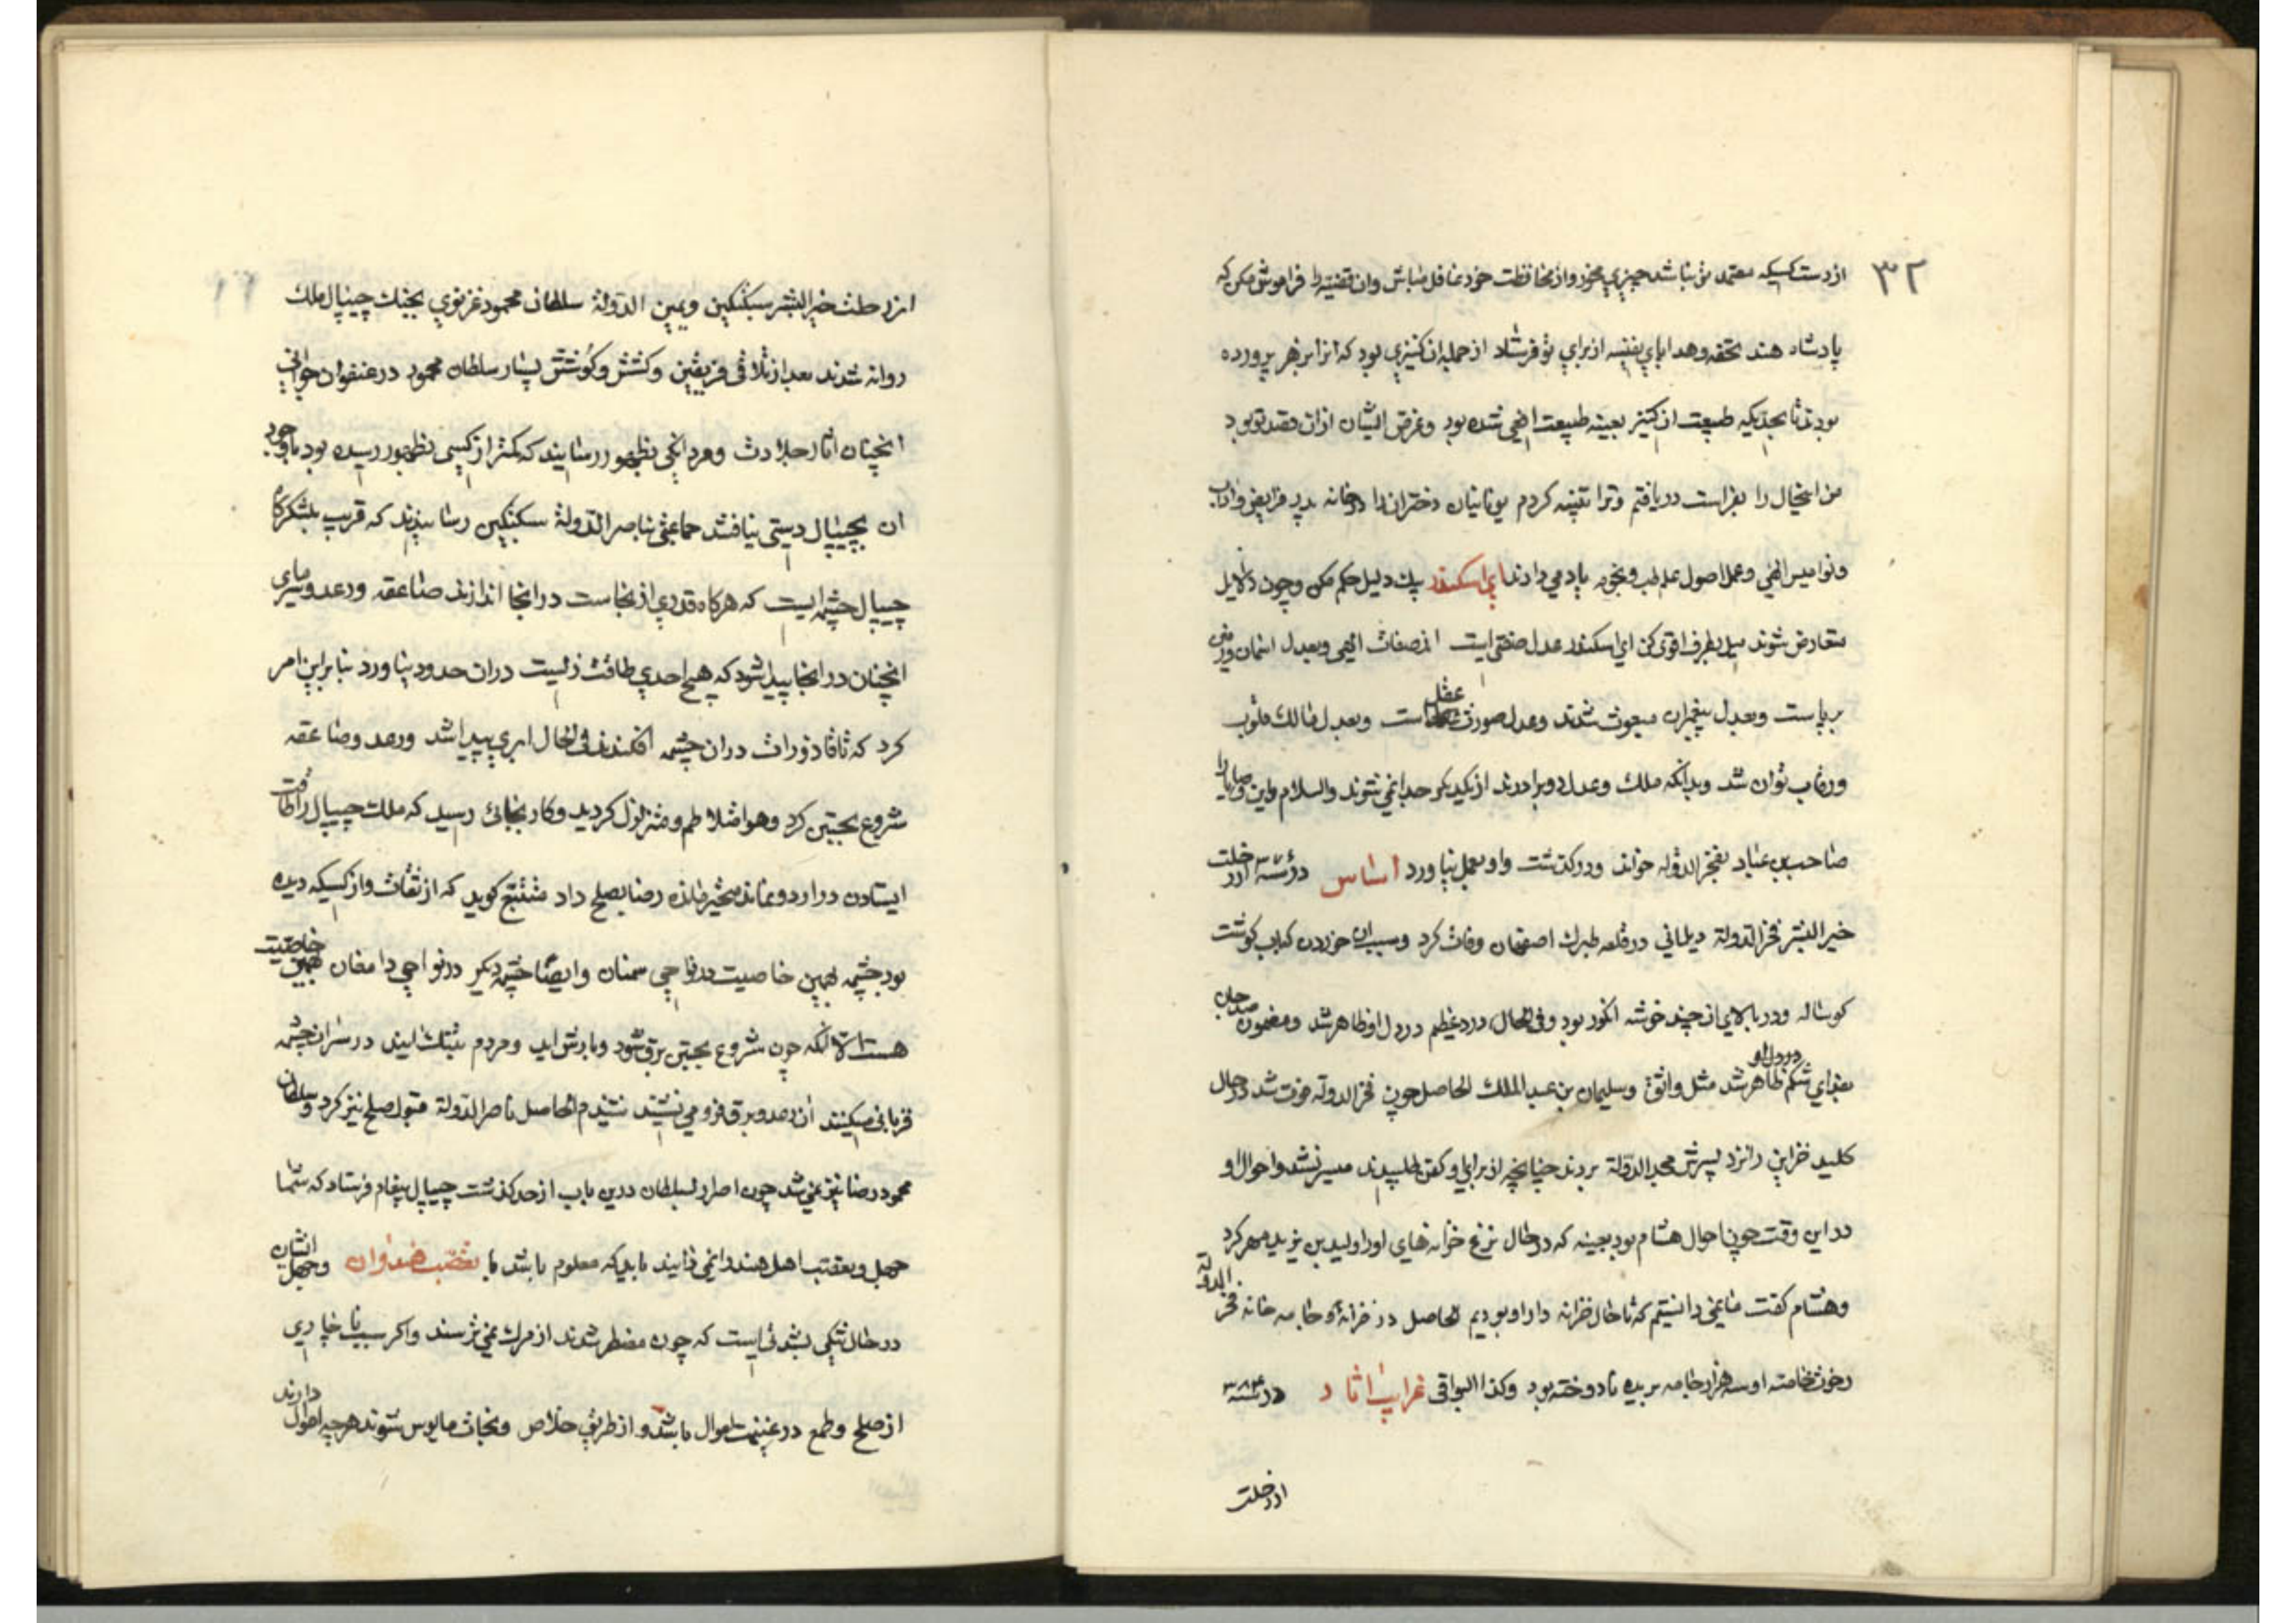 ۳۲
از دست کسیکه معتمد تو نباشد چیزی مخور و از محافظت خود غافل مباش و ان قضیه را فراموش مکن که
پادشاه هند تحفه و هدایای نفیسه از برای تو فرستاد از جمله ان کنیزی بود که انرا بزهر پرورده
بودند تا بحدیکه طبیعت ان کنیز بعینه طبیعت افعی شده بود و غرض ایشان ازان قصد تو بود
من اینحال را بفراست دریافتم و ترا تنبیه کردم یونانیان دختران را در خانه پدر فرایض و اداب
و نوامیس الهی و عمل اصول علم طب و نجوم یاد می دادند ای اسکندر بیک دلیل حکم مکن و چون دلایل
متعارض شوند میل بطرف اقوی کن ای اسکندر عدل صفتی است از صفات الهی و بعدل اسمان و زمین
برپاست و بعدل پیغمبران مبعوث شدند و عدل صورت عقل است و بعدل مالک قلوب
و رقاب توان شد و بدانکه ملک و عدل دو برادرند از یکدیکر جدا نمی شوند والسلام و این وصایا را
صاحب بن عباد بفخر الدوله خواند و درکذشت و او بعمل نیاورد اساس در سنه از رحلت
خیر البشر فخر الدولة دیلمانی در قلعه طبرک اصفهان وفات کرد و سبب ان خوردن کباب کوشت
کوساله و در بالای ان چند خوشه انکور بود و فی الحال درد عظیم در دل او ظاهر شد و مضمون
بفدای شکم ظاهر شد در دل او مثل واثق و سلیمان بن عبد الملک الحاصل چون فخر الدوله فوت شد در حال
کلید خزاین را نزد پسرش مجد الدولة بردند چنانچه از برای او کفن طلبیدند میسر نشد و احوال او
در این وقت چون احوال هشام بود بعینه که در حال نزع خزانه های او را ولید بن یزید مهر کرد
و هشام کفت ما نمی دانستیم که تا حال خزانه دار او بودیم الحاصل در خزانه و جامه خانه فخر الدوله
رخوت خاصه او سه هزار جامه بریده نادوخته بود و کذا البواقی غرایب اثار در سنه ۳۸۴
از رحلت
از رحلت خیر البشر سبکتکین و یمین الدولة سلطان محمود غزنوی بجنک چیپال ملک
روانه شدند بعد از تلاقی فریقین و کشش و کوشش بسیار سلطان محمود در عنفوان جوانی
انچنان اثار جلادت و مردانکی بظهور رسانیند که کمتر از کسی بظهور رسیده بود با وجود
ان بچیپال دستی نیافتند جماعتی بناصر الدولة سبکتکین رسانیدند که قریب بلشکرکاه
چیپال چشمه ایست که هرکاه قدری از نجاست در انجا اندازند صاعقه و رعد و سرمای
انچنان در انجا پیدا شود که هیچ احدی طاقت زیست دران حدود نیاورد بنابراین امر
کرد که تا قاذورات دران چشمه افکندند فی الحال ابری پیدا شد و رعد و صاعقه
شروع بجستن کرد و هوا متلاطم و متزلزل کردید و کار بجائی رسید که ملک چیپال را طاقت
ایستادن در اردو نماند متحیر مانده رضا بصلح داد متتبع کوید که از ثقات و از کسیکه دیده
بود چشمه بهمین خاصیت در نواحی سمنان و ایضا چشمه دیکر در نواحی دامغان بهمین خاصیت
هست الا انکه چون شروع بجستن برق شود و بارش اید و مردم بتنک ایند در سر ان چشمه
قربانی میکنند ان رعد و برق فرو می نشیند الحاصل ناصر الدولة قبول صلح نیز کرد و سلطان
محمود رضا نیز نمی شد چون اصرار سلطان درین باب از حد کذشت چیپال پیغام فرستاد که شما
جهل و تعصب اهل هند را نمی دانید باید که معلوم باشد با تعصب هندوان و جهل ایشان
در حال تنکی بشدتی است که چون مضطر شدند از مرک نمی ترسند و اکر سبب
از صلح و طمع در غنیمت اموال باشد و از طریق خلاص و نجات مایوس شوند هرچه اموال دارند